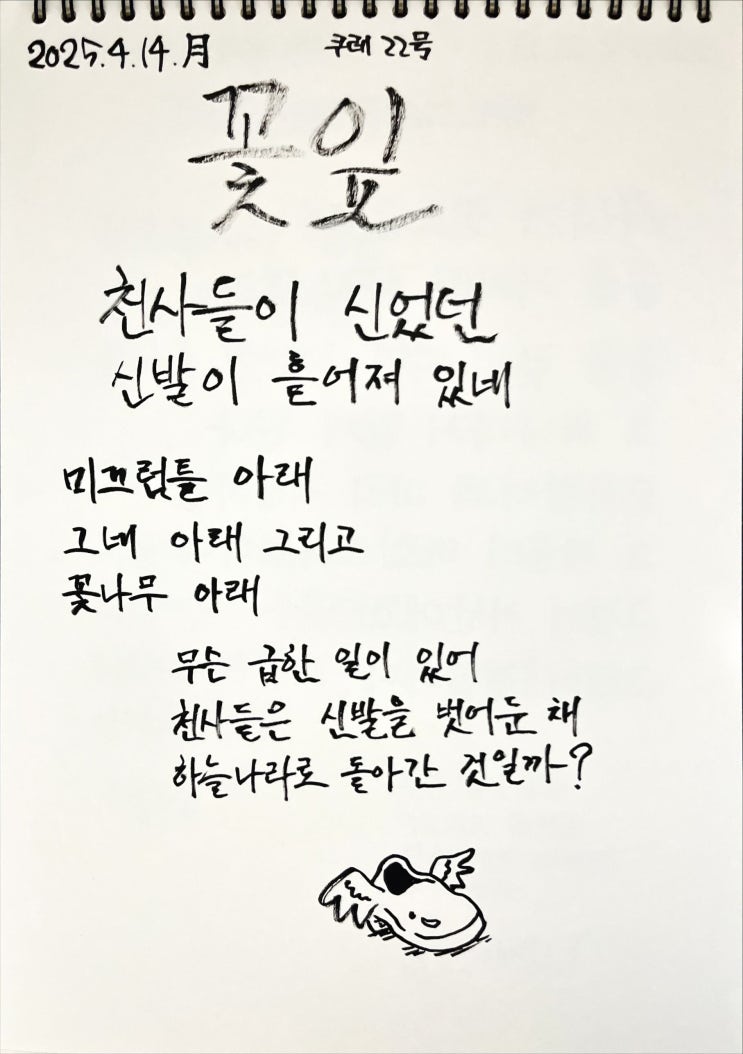 2025.4.14.月
쿠레 22号
꽃잎
천사들이 신었던
신발이 흩어져 있네
미끄럼틀 아래
그네 아래 그리고
꽃나무 아래
무슨 급한 일이 있어
천사들은 신발을 벗어둔 채
하늘나라로 돌아간 것일까?